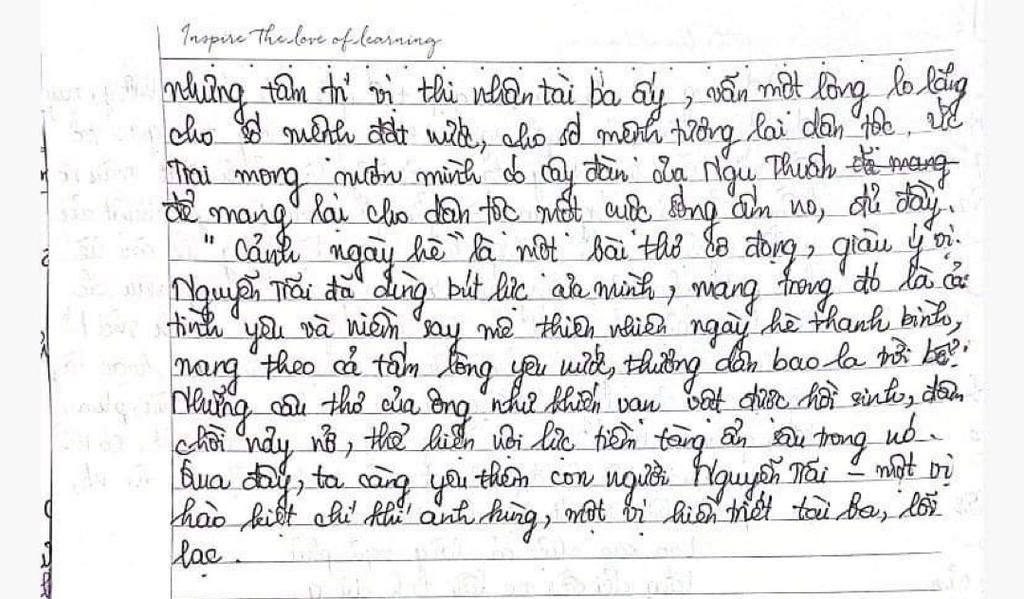 Inspire the love of learning
những tâm trí vì thi nhân tài ba ấy, vẫn một lòng lo lắng
cho số mệnh đất nước, cho số mệnh tương lai dân tộc. Ức
Trai mong muốn mình có cây đàn của Ngu Thuấn để mang
để mang lại cho dân tộc một cuộc sống ấm no, đủ đầy.
"Cảnh ngày hè" là một bài thơ cô đọng, giàu ý vị.
Nguyễn Trãi đã dùng bút lực của mình, mang trong đó là cả
tình yêu và niềm say mê thiên nhiên ngày hè thanh bình,
mang theo cả tấm lòng yêu nước, thương dân bao la trời bể.
Những câu thơ của ông như khiến vạn vật được hồi sinh, đâm
chồi nảy nở, thể hiện nội lực tiềm tàng ẩn sâu trong nó.
Qua đây, ta càng yêu thêm con người Nguyễn Trãi – một vị
hào kiệt chí khí anh hùng, một vị hiền triết tài ba, lỗi
lạc.